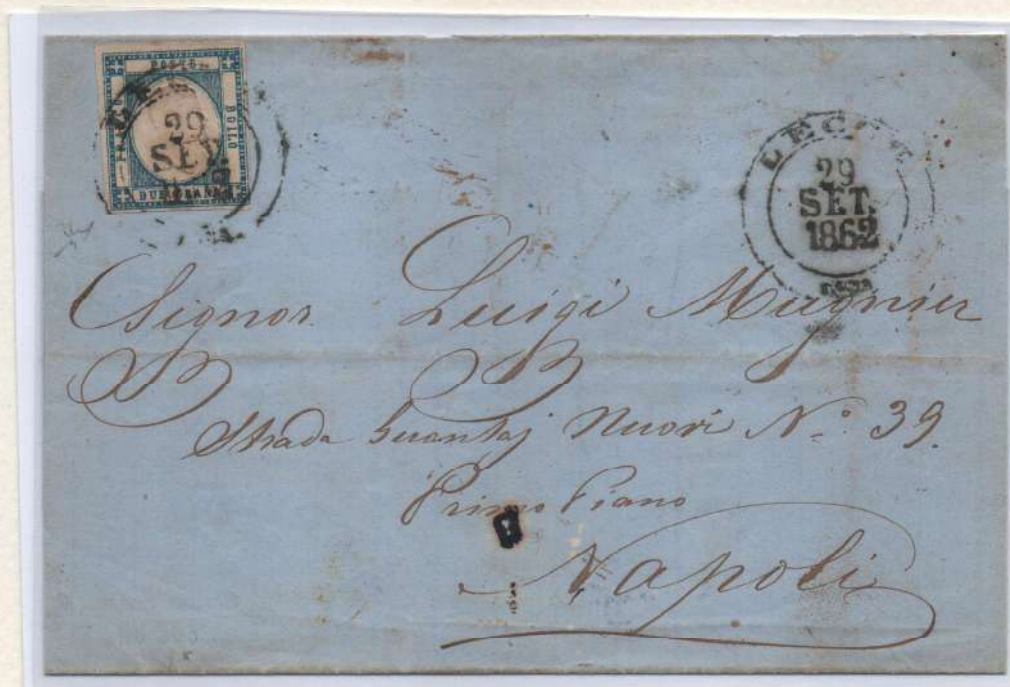 FRANCO
BOLLO
29
SET.
LECCE
29
SET.
1862
Signor Luigi Mugnier
Strada Guantaj Nuovi N.º 39.
Primo Piano
Napoli